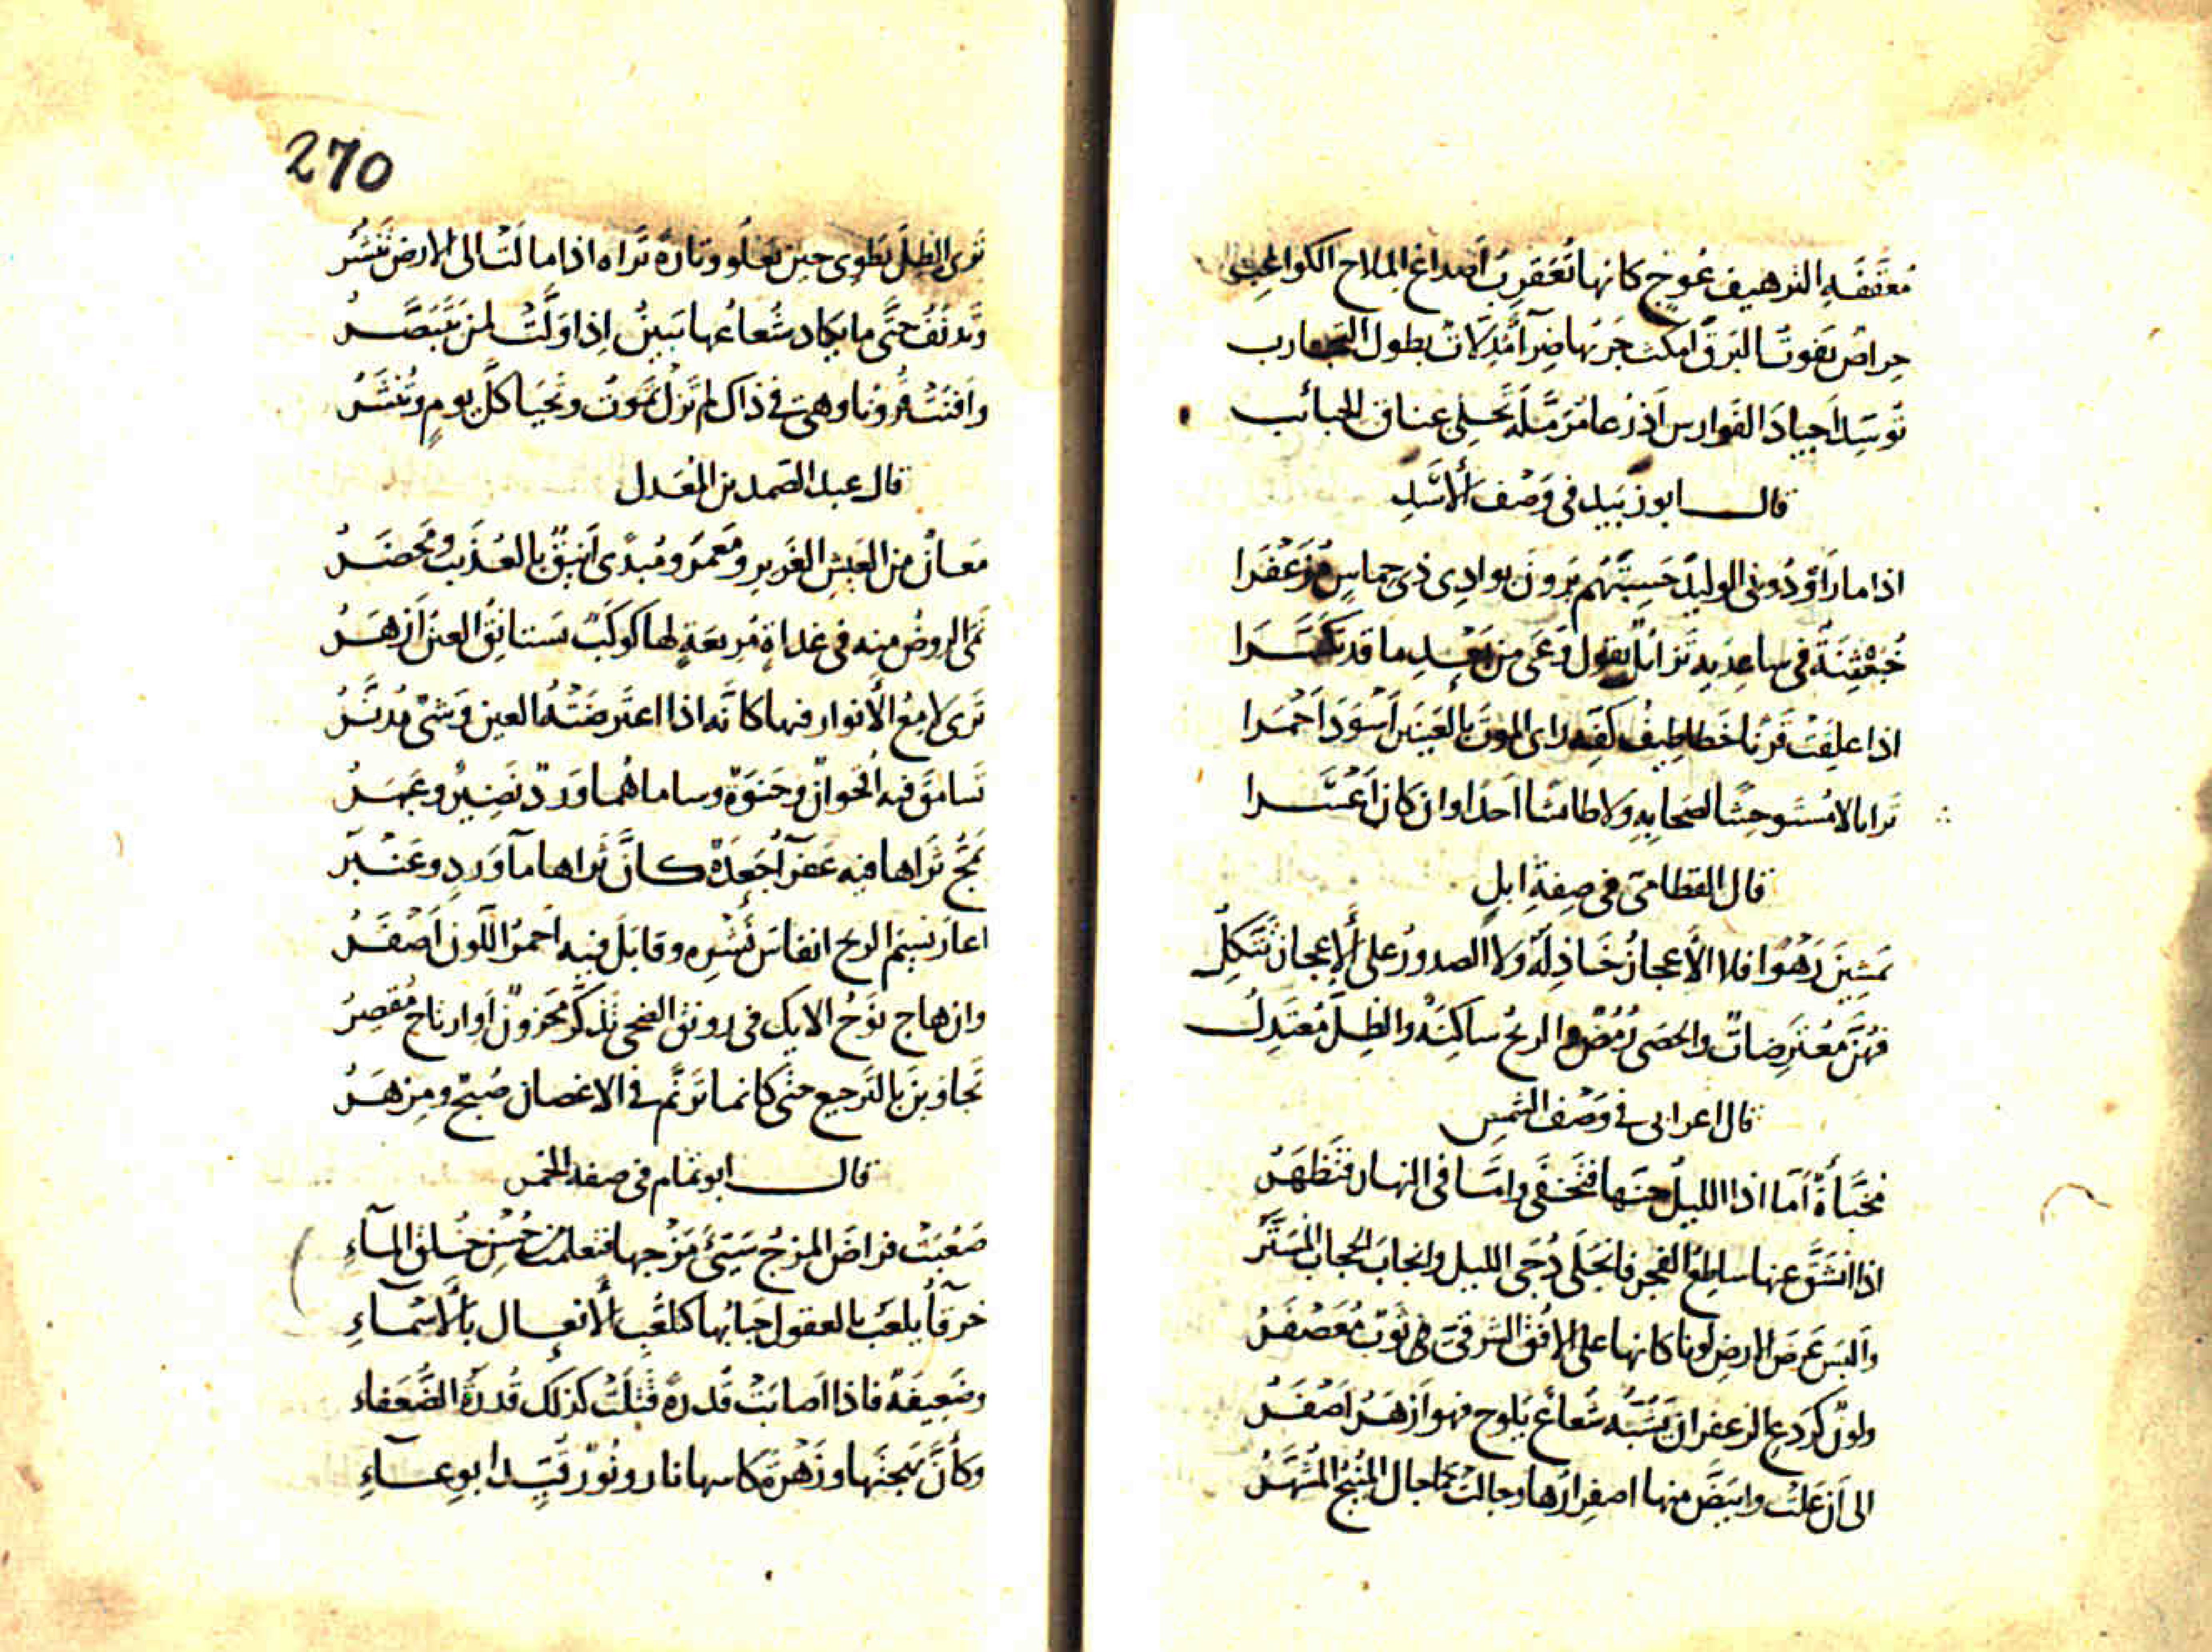 مُعَقَّفَةِ الترهيف عُوجٍ كانها تُعَقرِبُ أصداغ الملاح الكواعب
حِراصٌ يَفوت البَرقَ امكث جَريها ضِرآءٌ مُدِلّات بطول التجارب
تُوَسِّد اجيادَ الفوارس اَذرُعا مُرمَّلة تحكى عناق الحبائب
قال ابو زبيد فى وصف الاسَد
اذا ما رَأَوْ دُونى الوليدَ حَسِبتَهُم يَرونَ بوادِى ذى حماسٍ مُزَعْفَرا
خُبَعْثِنَةٌ فى ساعِدَيه تَزايُلٌ يقول وَعَى من بَعْدِ ما قد تَكَسَّرا
اذا عَلِقَت قَرنا خَطاطيفُ كَفّه راى الموتَ بالعَينَين اَسْوَدَ اَحْمَرا
ترا بالا مُستَوحِشًا لصَحابِهِ ولا طائشًا احدًا وان كان أَعْسَرا
قال القطامى فى صِفةِ ابلٍ
يَمشينَ رَهْوًا فلا الأعجازُ خاذِلَةٌ وَلا الصدورُ على الأعجاز تَتَّكِلُ
فهُنَّ مُعْتَرِضاتٌ والحصَى رُمُضٌ والريحُ ساكِنَةٌ والظِلُّ مُعتَدِلُ
قال اعرابى فى وَصْفِ الشمس
مُخَبَّأَةٌ أَمّا اذا الليلُ جنّها فتَخفَى وامّا فى النهار فتَظهَرُ
اذا انشَقَّ عنها ساطِعُ الفجر فانجَلَى دُجَى الليل وانجابَ الحجابُ المُسَتَّرُ
وأَلبَسَ عَرضَ الارضِ لونا كانها على الافُقِ الشرقىّ فى ثوبٌ مُعَصْفَرُ
ولونٌ كَرَدعِ الزعفران يَشُبُّهُ شُعاعٌ يَلوحُ فهو ازهَرُ اَصْفَرُ
الى أن عَلَت وابيَضَّ منها اصفِرارُها وجالَت كما جال المُنيحُ المُشَهَّرُ
270
تَرى الظلَّ يُطوى حين تعلُو وتارةً تَراه اذا مالَتْ الى الارض يُنشَرُ
وتَدنَفُ حتَّى ما يكاد شُعاعُها يَبينُ اِذا وَلَّت لمن يَتَبَصَّرُ
وافنَتْ قُرونا وهىَ فى ذاك لم تَزَلْ تَموتُ وتَحيا كلَّ يومٍ وتُنشَرُ
قال عبد الصمد بن المُعَدل
مَعانٌ من العيش الغَريرِ ومَعمَرٌ ومُبدًى اَنيقٌ بالعُذَيب ومحضَرُ
نَمَى الروضُ منه فى غداةٍ مُرِيعَةٍ لها كوكَبٌ يَستانِقُ العينُ اَزهَرُ
تَرَى لامِعَ الأنوار فيها كانّه اذا اعتَرضَتْهُ العين وَشىٌ مُدَنَّرُ
تَسامَقَ فيه اُقحُوانٌ وحَنوَةٌ وساماهُما وَردٌ نَضِيرٌ وعَبهَرُ
يَمُجُّ ثَراها فيه عَفرآءُ جَعدَةٌ كانَّ ثَراها مآ وَردٍ وعَنبَر
اعارَ نسيمَ الريح انفاسَ نَشْرِه وقابَلَ فيه احمَرَ اللّون أصفَرُ
وان هاج نَوحُ الايك فى رونق الضحى تذكَّرَ محزونٌ اوِ ارتاحَ مُقصِرُ
تجاوبنَ بالترجيع حتى كانما تَرنَّم فى الاغصان صُبحٌ ومِزهَرُ
قال ابو تمام فى صفة الخمر
صَعُبَت فراضَ المزجُ سَيِّئَ مَزجها فتعلمَت من حُسنِ خُلقِ المآءِ
خرقآءُ يَلعَبُ بالعقول حَبابُها كتلعُّبِ الأفعال بالأسمآءِ
وضَعِيفَةٌ فاذا اَصابَتْ قُدرةً قَتَلَتْ كذلك قُدرَةُ الضُعَفاءِ
وكأنَّ بَهجَتَها وزَهرَةَ كاسها نارٌ ونُورٌ قُيِّدا بوِعآءِ